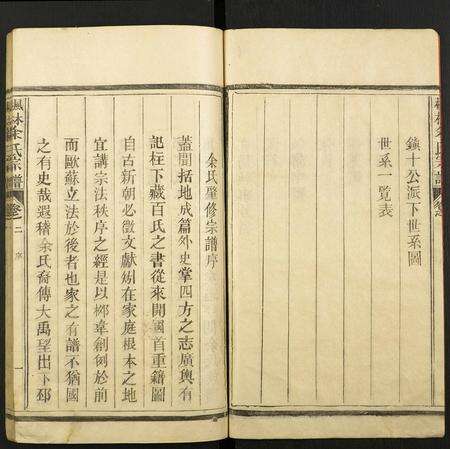 鎮十公派下世系圖
世系一覽表
余氏肇修宗譜序
蓋聞括地成篇外史掌四方之志廣輿有
記柱下藏百氏之書從來開國首重籍圖
自古新朝必徵文獻矧在家庭根本之地
宜講宗法秩序之經是以韋創例於前
而歐蘇立法於後者也家之有譜不猶國
之有史哉遐稽余氏裔傳大禹望出下邳
林余氏宗譜 卷 二 序 一